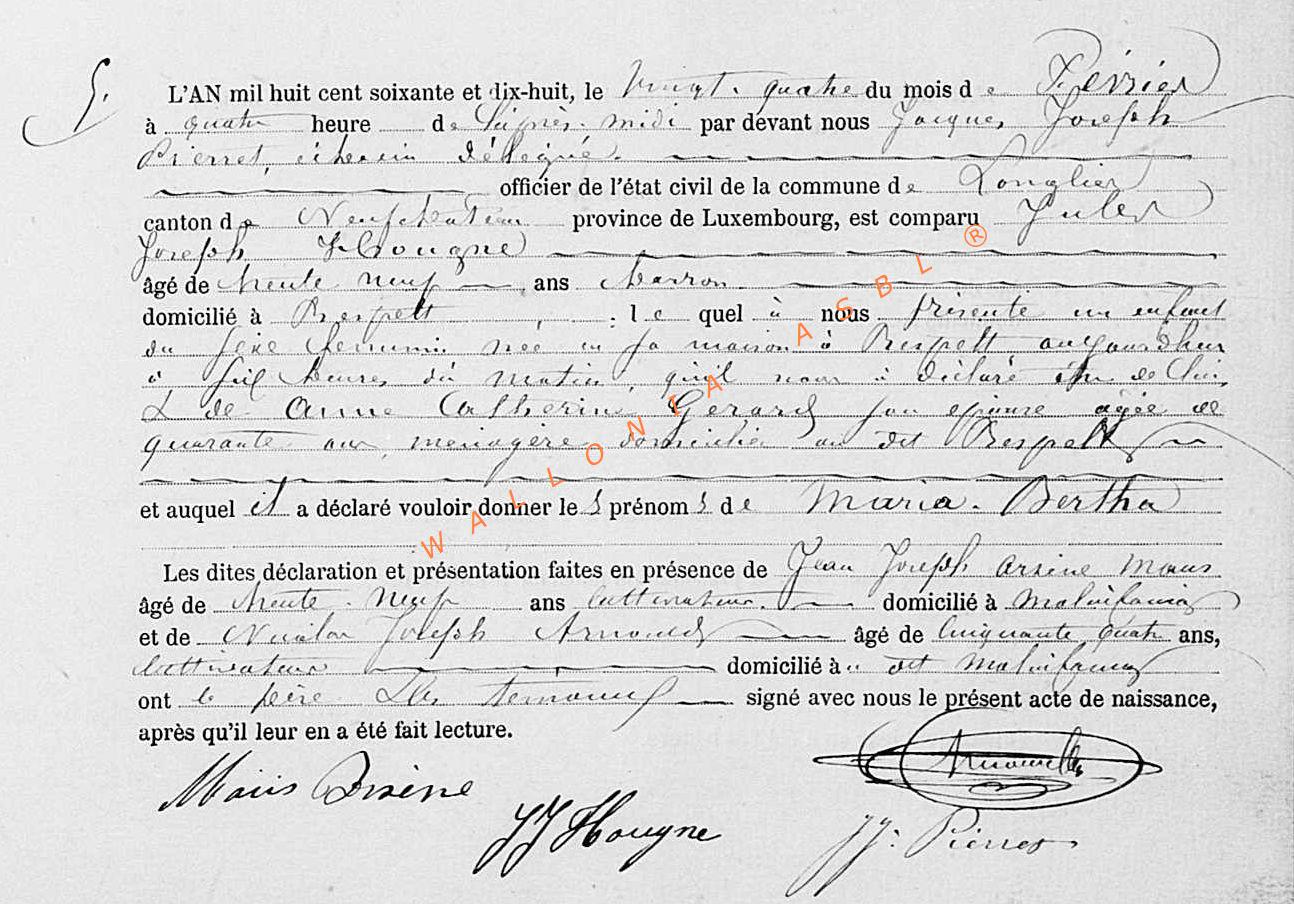 5.
L'AN mil huit cent soixante et dix-huit, le Vingt-quatre du mois de Février
à quatre heure de l'après-midi par devant nous Jacques Joseph
Pierret, échevin délégué.
officier de l'état civil de la commune de Longlier
canton de Neufchateau province de Luxembourg, est comparu Jules
Joseph Hougne
âgé de trente neuf ans charron
domicilié à Respelt , : le quel à nous présenté un enfant
du sexe feminin née en sa maison à Respelt aujourdhui
à six heures du matin, qu'il nous à déclaré être de lui,
& de Anne Catherine Gerard son épouse agée de
quarante ans, menagère domiciliée au dit Respelt
et auquel il a déclaré vouloir donner les prénoms de Maria-Bertha
Les dites déclaration et présentation faites en présence de Jean Joseph Arsène Maus
âgé de trente-neuf ans cultivateur domicilié à Molinfaing
et de Nicolas Joseph Arnould âgé de cinquante quatre ans,
cultivateur domicilié à u dit Molinfaing
ont le père & les témoins signé avec nous le présent acte de naissance,
après qu'il leur en a été fait lecture.
Maus Arsène
JJ Hougne
JJ. Pierret
WALLONIA ASBL ®